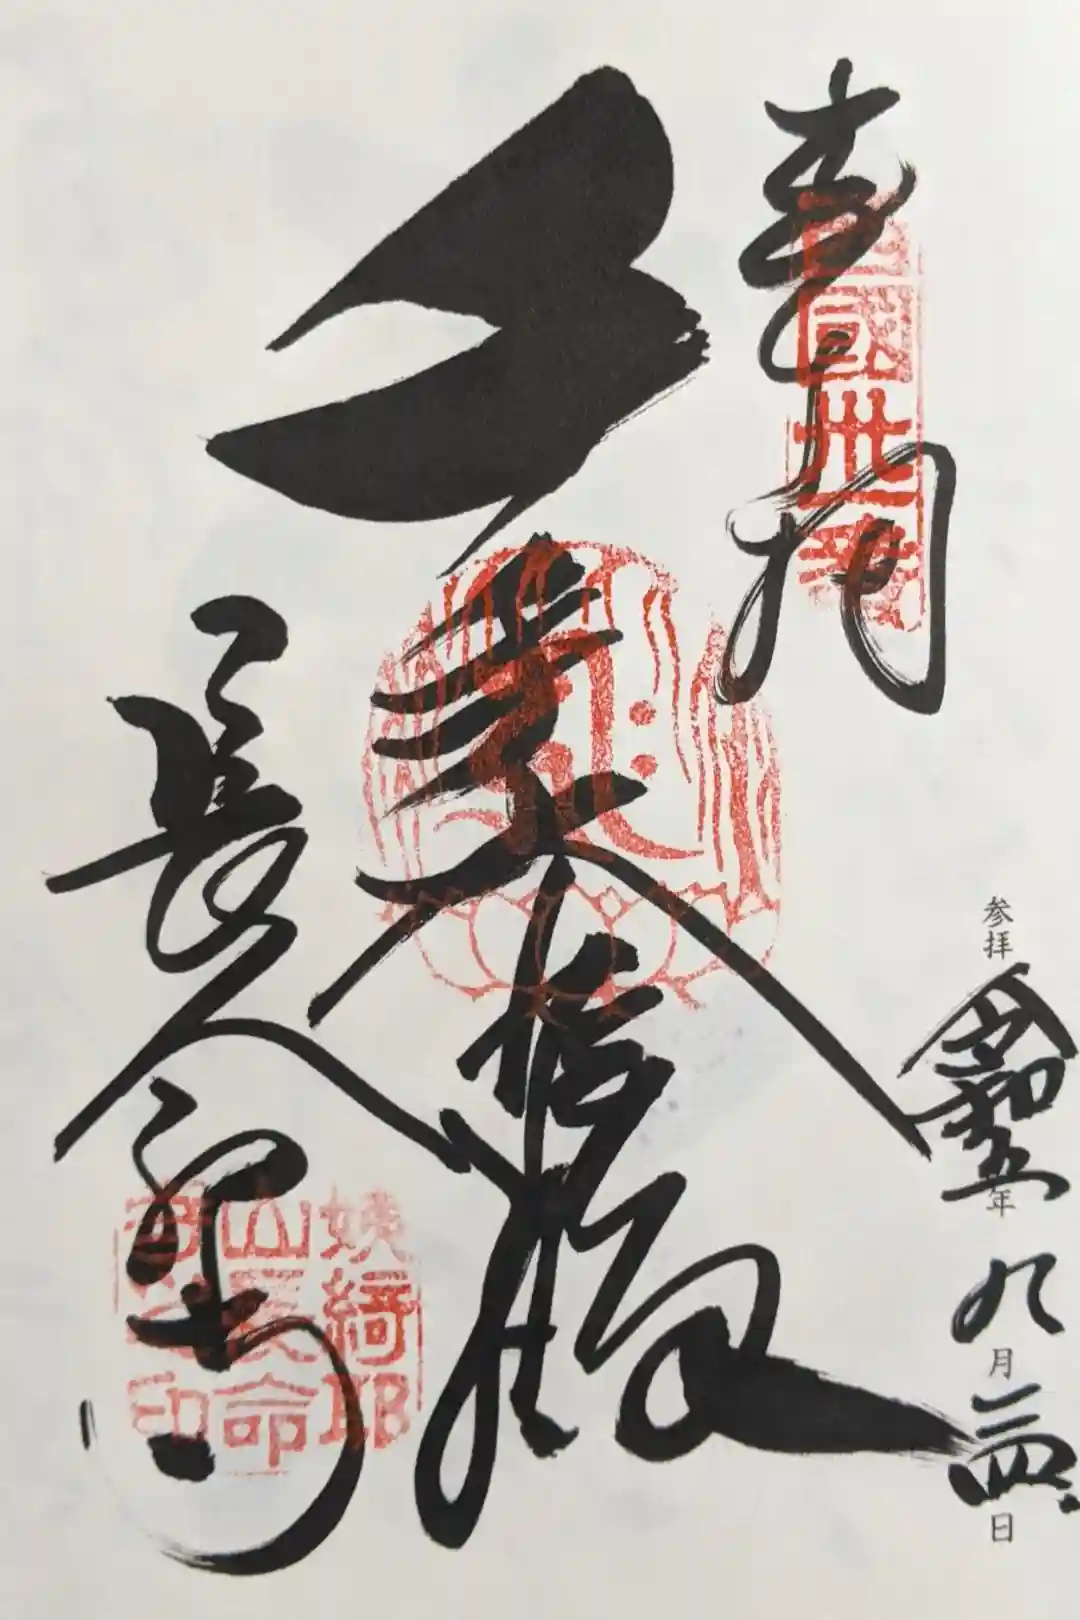 奉拝
西國卅一番
大悲殿
長命寺
姨綺耶
山長命
寺之印
参拝 令和五年 九月二四日